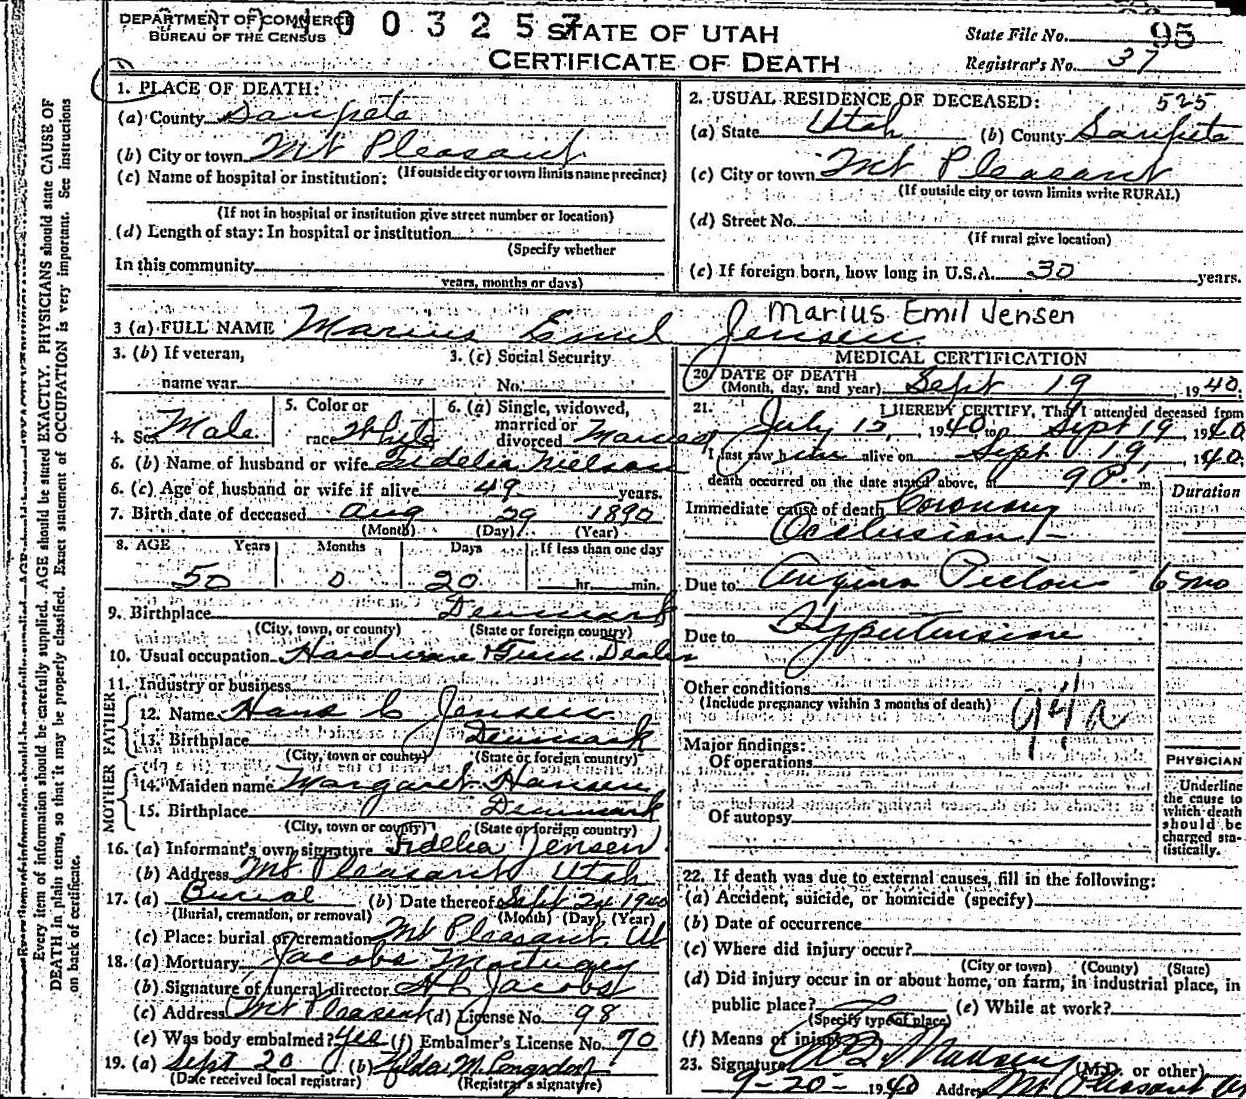 DEPARTMENT OF COMMERCE
BUREAU OF THE CENSUS
0 0 3 2 5 7
STATE OF UTAH
CERTIFICATE OF DEATH
State File No. 95
Registrar's No. 37
Every item of information should be carefully supplied. AGE should be stated EXACTLY. PHYSICIANS should state CAUSE OF
DEATH in plain terms, so that it may be properly classified. Exact statement of OCCUPATION is very important. See instructions
on back of certificate.
1. PLACE OF DEATH:
(a) County Sanpete
(b) City or town Mt Pleasant
(If outside city or town limits name precinct)
(c) Name of hospital or institution:
(If not in hospital or institution give street number or location)
(d) Length of stay: In hospital or institution
(Specify whether
In this community
years, months or days)
2. USUAL RESIDENCE OF DECEASED: 525
(a) State Utah (b) County Sanpete
(c) City or town Mt Pleasant
(If outside city or town limits write RURAL)
(d) Street No.
(If rural give location)
(e) If foreign born, how long in U.S.A. 30 years.
3 (a) FULL NAME Marius Emil Jensen
Marius Emil Jensen
3. (b) If veteran,
name war
3. (c) Social Security
No.
4. Sex Male
5. Color or
race White
6. (a) Single, widowed,
married or
divorced Married
6. (b) Name of husband or wife Fidelia Nielson
6. (c) Age of husband or wife if alive 49 years.
7. Birth date of deceased Aug 29 1890
(Month) (Day) (Year)
8. AGE Years Months Days If less than one day
50 0 20 hr. min.
9. Birthplace Denmark
(City, town, or county) (State or foreign country)
10. Usual occupation Hardware & Furn. Dealer
11. Industry or business
FATHER
12. Name Hans C Jensen
13. Birthplace Denmark
(City, town or county) (State or foreign country)
MOTHER
14. Maiden name Margaret Hansen
15. Birthplace Denmark
(City, town or county) (State or foreign country)
16. (a) Informant's own signature Fidelia Jensen
(b) Address Mt. Pleasant Utah
17. (a) Burial (b) Date thereof Sept 24 1940
(Burial, cremation, or removal) (Month) (Day) (Year)
(c) Place: burial or cremation Mt Pleasant, Ut
18. (a) Mortuary Jacobs Mortuary
(b) Signature of funeral director Jacobs
(c) Address Mt Pleasant (d) License No. 98
(e) Was body embalmed? Yes (f) Embalmer's License No. 70
19. (a) Sept 20 (b) Hilda M. Longsdorf
(Date received local registrar) (Registrar's signature)
MEDICAL CERTIFICATION
20. DATE OF DEATH
(Month, day, and year) Sept 19, 1940.
21. I HEREBY CERTIFY, That I attended deceased from
July 15, 1940, to Sept 19 1940
I last saw him alive on Sept 19, 1940.
death occurred on the date stated above, at 9 P. m.
Duration
Immediate cause of death Coronary
Occlusion
Due to Angina Pectoris 6 mo
Due to Hypertension
Other conditions
(Include pregnancy within 3 months of death)
94a
Major findings:
Of operations
Of autopsy
PHYSICIAN
Underline
the cause to
which death
should be
charged sta-
tistically.
22. If death was due to external causes, fill in the following:
(a) Accident, suicide, or homicide (specify)
(b) Date of occurrence
(c) Where did injury occur?
(City or town) (County) (State)
(d) Did injury occur in or about home, on farm, in industrial place, in
public place? (e) While at work?
(Specify type of place)
(f) Means of injury
23. Signature Madsen (M.D. or other)
9-20- 1940 Address Mt Pleasant Ut